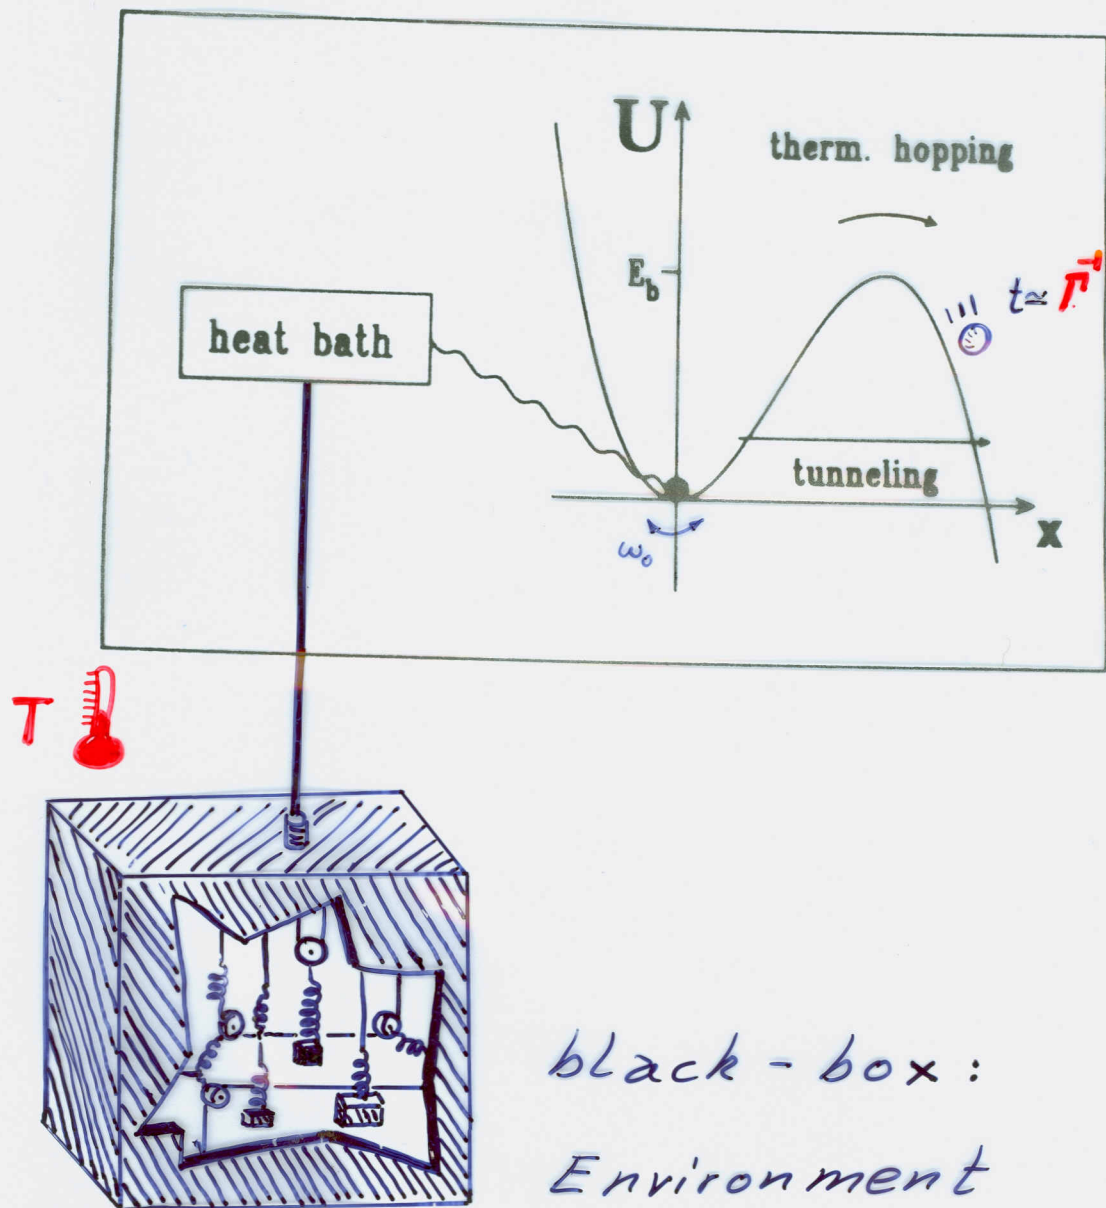 U
therm. hopping
E_b
t ≃ Γ⁻¹
heat bath
tunneling
x
ω₀
T
black - box :
Environment